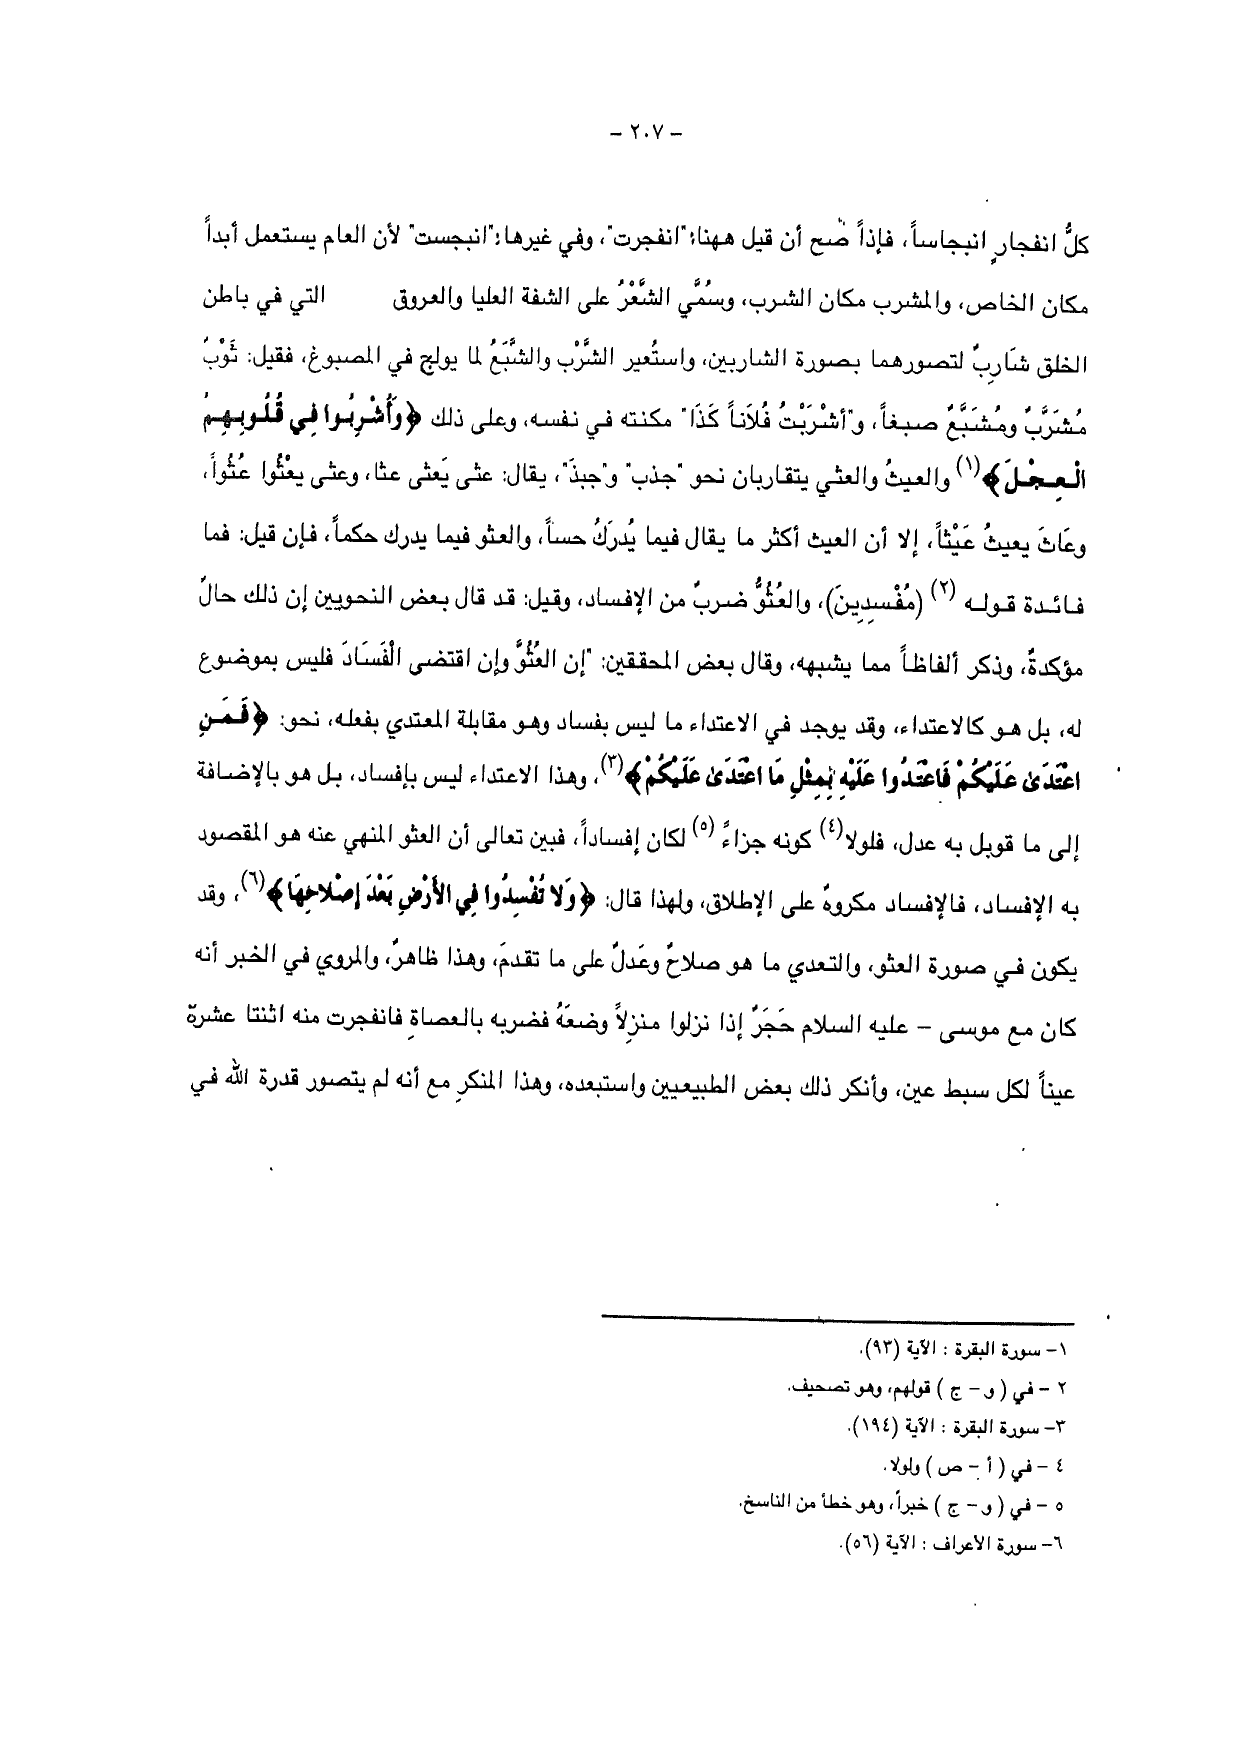 – ٢٠٧ –
كلُّ انفجارٍ انبجاساً، فإذاً صُح أن قيل ههنا: "انفجرت"، وفي غيرها: "انبجست" لأن العام يستعمل أبداً
مكان الخاص، والمشرب مكان الشرب، وسُمَّي الشَّعْرُ على الشفة العليا والعروق التي في باطن
الخلق شَارِبٌ لتصورهما بصورة الشاربين، واستُعير الشَّرْب والشَّبَعُ لما يولج في المصبوغ، فقيل: ثَوْبٌ
مُشرَّبٌ ومُشبَّعٌ صبغاً، و"أشْرَبْتُ فُلاَناً كَذَا" مكنته في نفسه، وعلى ذلك ﴿وَأُشْرِبُوا فِي قُلُوبِهِمُ
الْعِجْلَ﴾(١) والعيثُ والعثي يتقاربان نحو "جذب" و"جبذَ"، يقال: عثى يَعثى عثا، وعثى يعْثُوا عُثُواً،
وعَاثَ يعيثُ عَيْثاً، إلا أن العيث أكثر ما يقال فيما يُدرَكُ حساً، والعثو فيما يدرك حكماً، فإن قيل: فما
فائدة قوله (٢) (مُفْسِدِينَ)، والعُثُوُّ ضربٌ من الإفساد، وقيل: قد قال بعض النحويين إن ذلك حالٌ
مؤكدةٌ، وذكر ألفاظاً مما يشبهه، وقال بعض المحققين: "إن العُثُوَّ وإن اقتضى الْفَسَادَ فليس بموضوع
له، بل هو كالاعتداء، وقد يوجد في الاعتداء ما ليس بفساد وهو مقابلة المعتدي بفعله، نحو: ﴿فَمَنِ
اعْتَدَىٰ عَلَيْكُمْ فَاعْتَدُوا عَلَيْهِ بِمِثْلِ مَا اعْتَدَىٰ عَلَيْكُمْ﴾(٣)، وهذا الاعتداء ليس بإفساد، بل هو بالإضافة
إلى ما قوبل به عدل، فلولا(٤) كونه جزاءً (٥) لكان إفساداً، فبين تعالى أن العثو المنهي عنه هو المقصود
به الإفساد، فالإفساد مكروهٌ على الإطلاق، ولهذا قال: ﴿وَلَا تُفْسِدُوا فِي الْأَرْضِ بَعْدَ إِصْلَاحِهَا﴾(٦)، وقد
يكون في صورة العثو، والتعدي ما هو صلاحٌ وعَدلٌ على ما تقدمَ، وهذا ظاهرٌ، والمروي في الخبر أنه
كان مع موسى – عليه السلام حَجَرٌ إذا نزلوا منزلاً وضعَهُ فضربه بالعصاةِ فانفجرت منه اثنتا عشرة
عيناً لكل سبط عين، وأنكر ذلك بعض الطبيعيين واستبعده، وهذا المنكرِ مع أنه لم يتصور قدرة اللّه في
١– سورة البقرة : الآية (٩٣).
٢ – في ( و – ج ) قولهم، وهو تصحيف.
٣– سورة البقرة : الآية (١٩٤).
٤ – في ( أ – ص ) ولولا.
٥ – في ( و – ج ) خبراً، وهو خطأ من الناسخ.
٦– سورة الاعراف : الآية (٥٦).